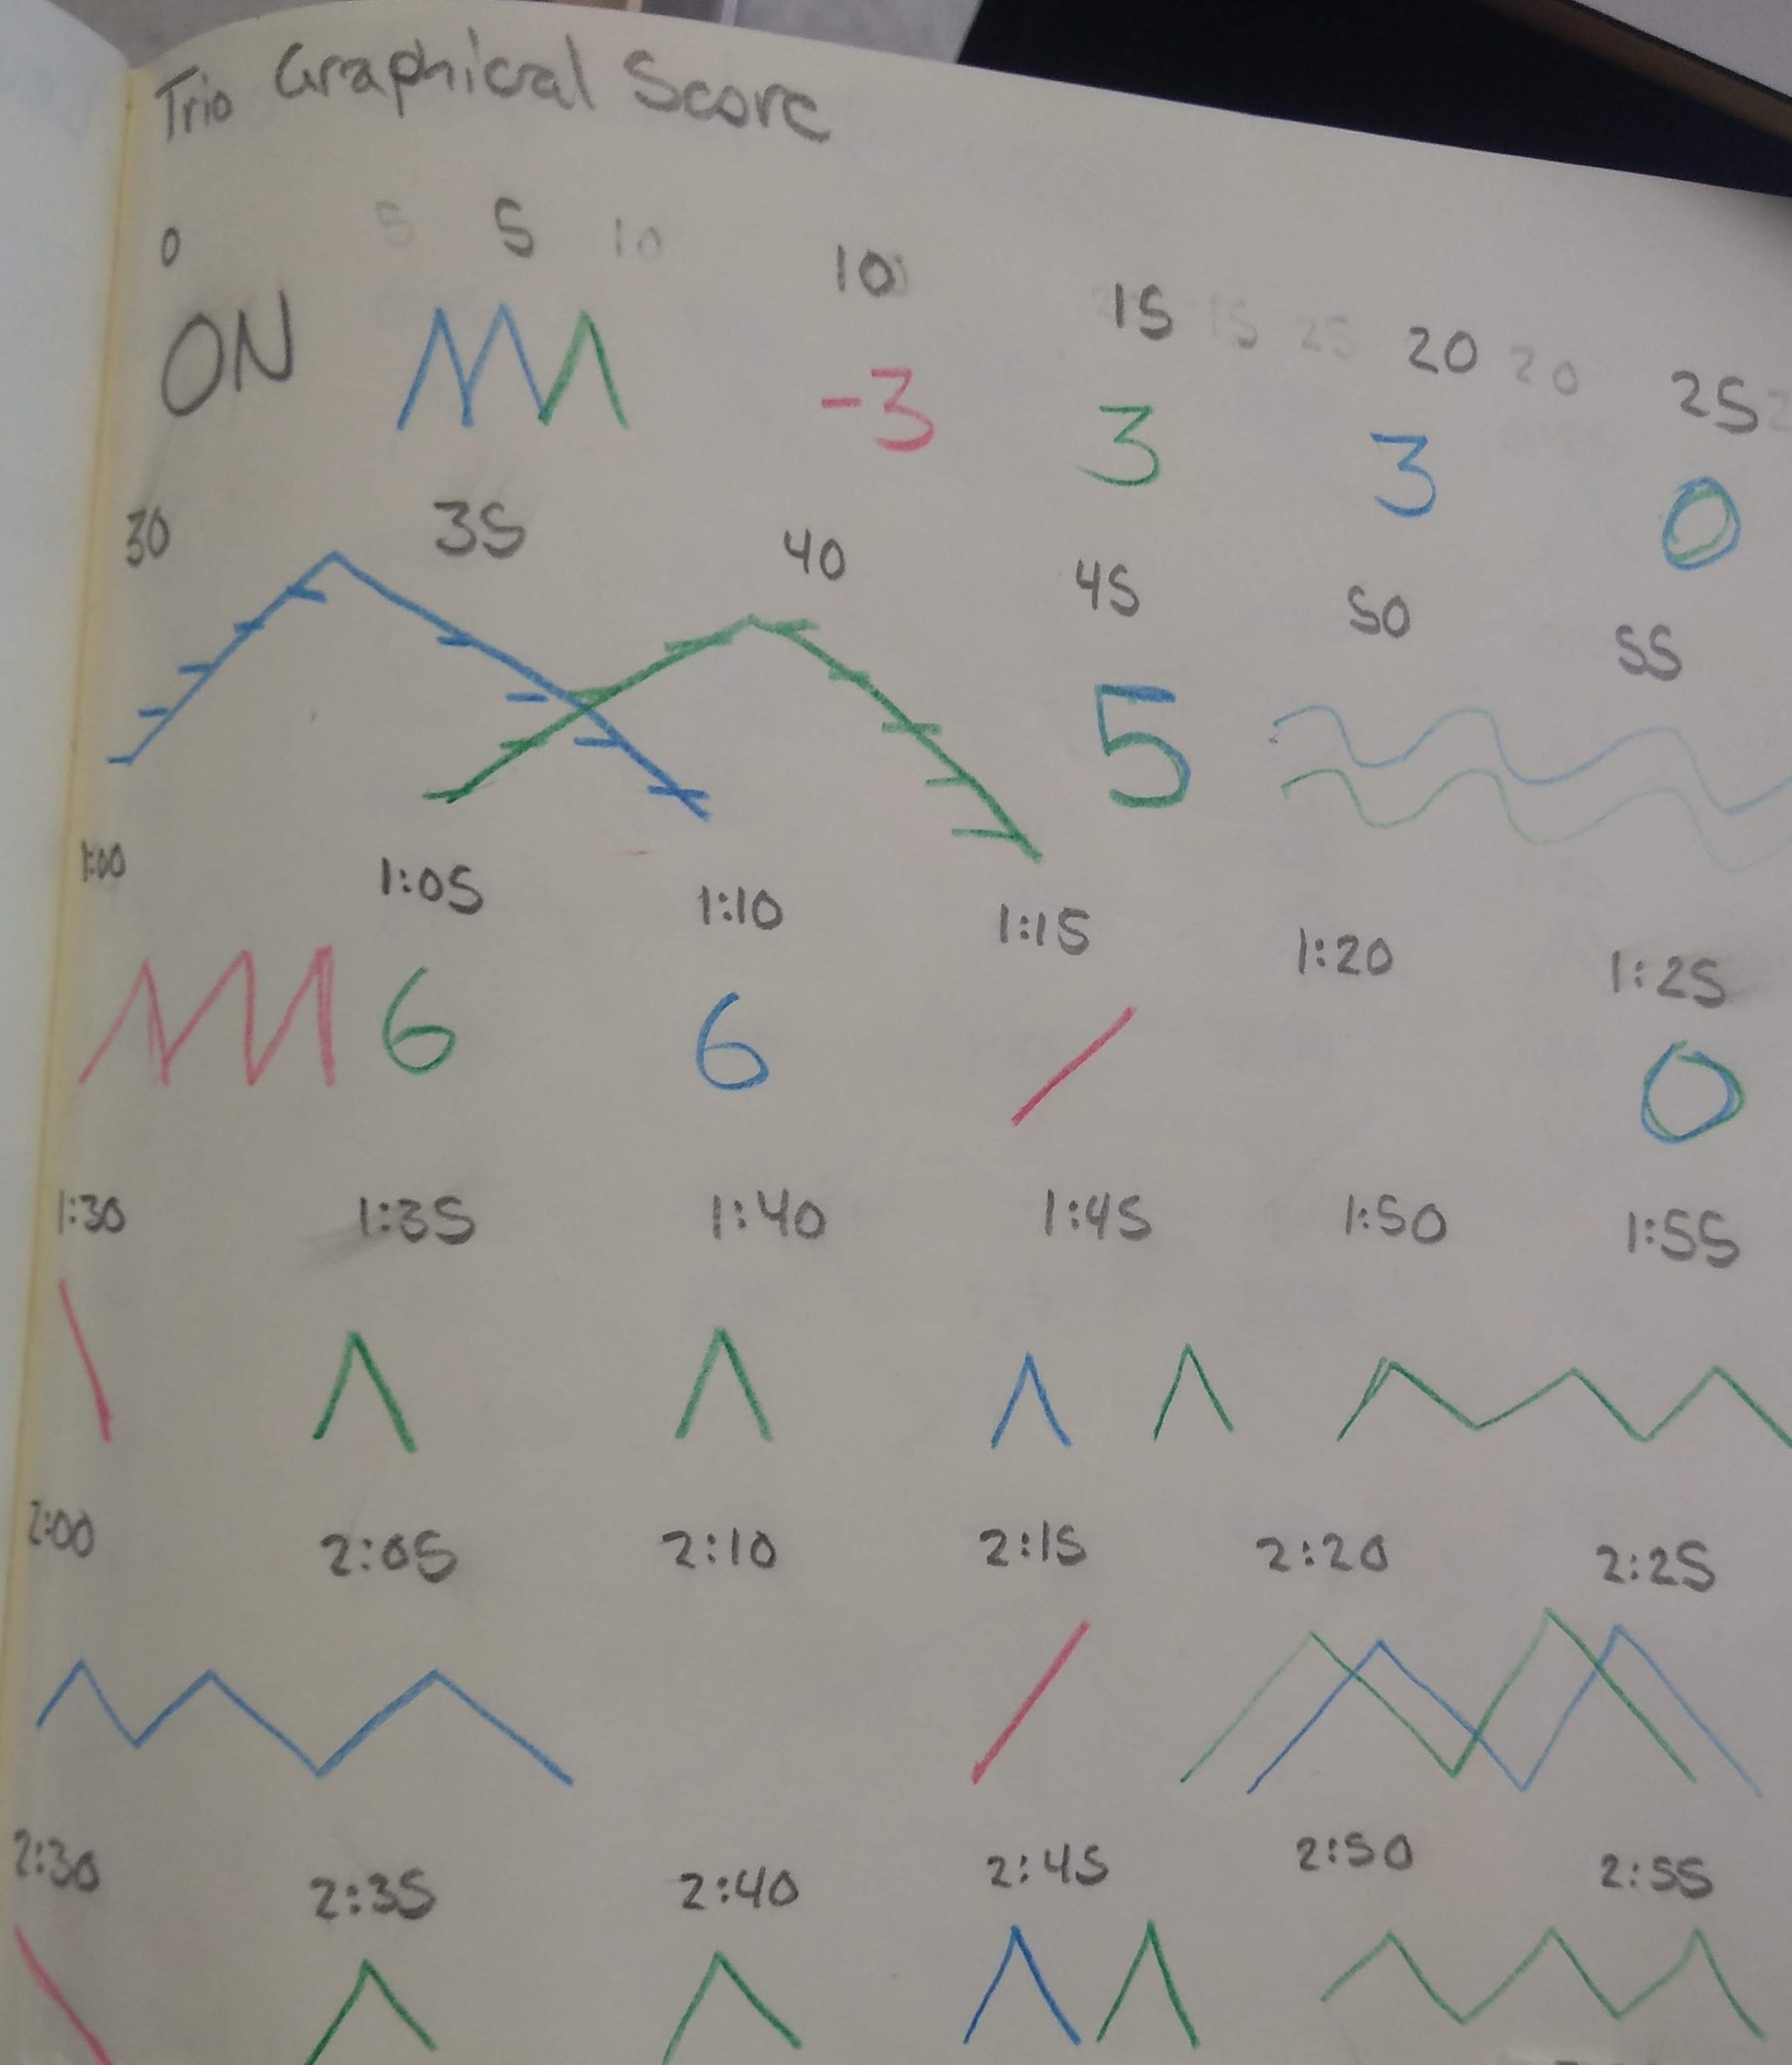 Trio Graphical Score
0 5 10 15 20 25
ON -3 3 3 0
30 35 40 45 50 55
5
1:00 1:05 1:10 1:15 1:20 1:25
6 6 0
1:30 1:35 1:40 1:45 1:50 1:55
2:00 2:05 2:10 2:15 2:20 2:25
2:30 2:35 2:40 2:45 2:50 2:55